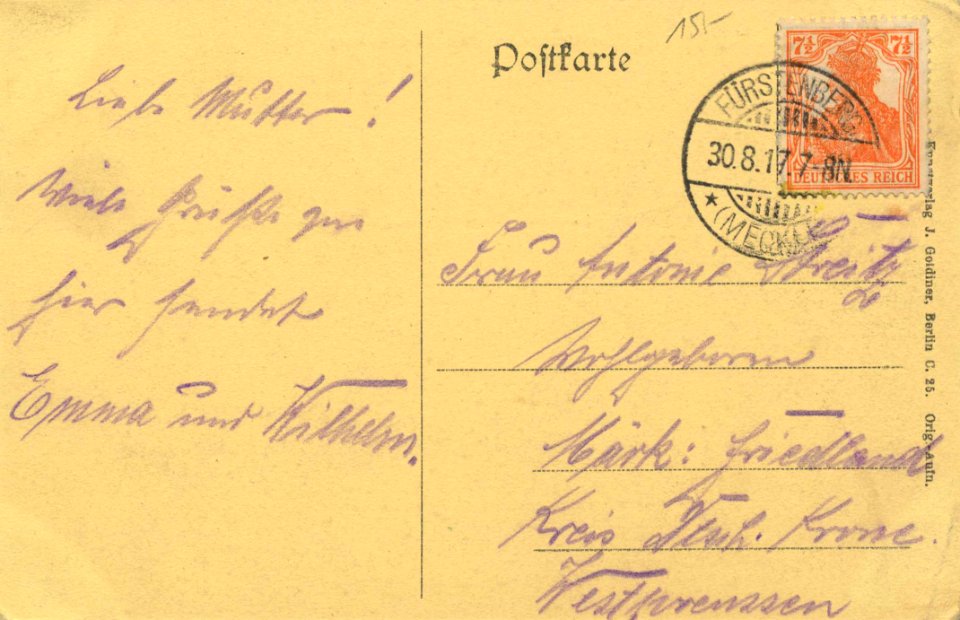 Liebe Mutter!
Viele Grüße von
hier sendet
Emma und Wilhelm.
15-
Postkarte
7½ 7½
DEUTSCHES REICH
FÜRSTENBERG
30.8.17.7-8N.
(MECKL
Frau Antonie Streitz
Wohlgeboren
Märk: Friedland
Kreis Dtsch. Krone.
Westpreussen
Kunstverlag J. Goldiner, Berlin C. 25. Orig.-Aufn.